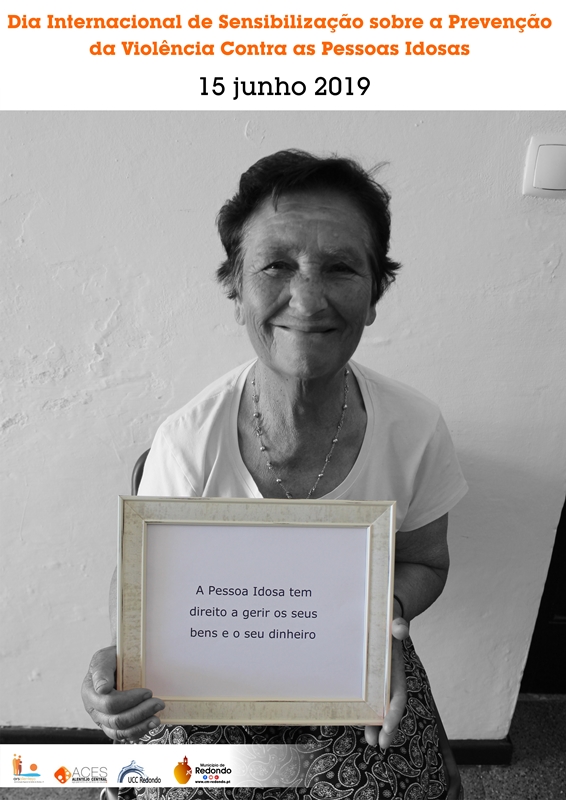 Dia Internacional de Sensibilização sobre a Prevenção
da Violência Contra as Pessoas Idosas
15 junho 2019
A Pessoa Idosa tem
direito a gerir os seus
bens e o seu dinheiro
ACES
ALENTEJO CENTRAL
UCC Redondo
Município de
Redondo
www.cm-redondo.pt